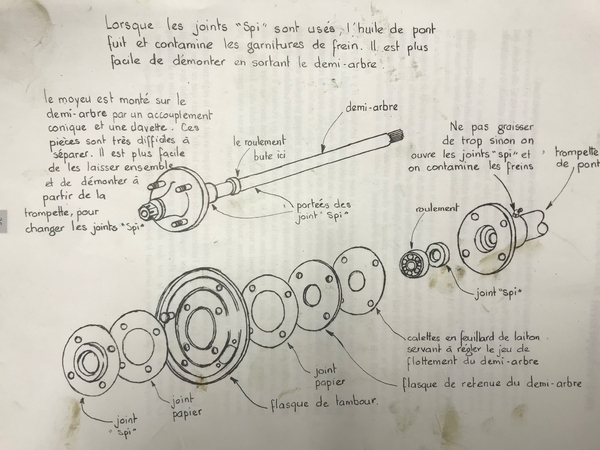 Lorsque les joints "Spi" sont usés, l'huile de pont
fuit et contamine les garnitures de frein. Il est plus
facile de démonter en sortant le demi-arbre.
le moyeu est monté sur le
demi-arbre par un accouplement
conique et une clavette. Ces
pièces sont très difficiles à
séparer. Il est plus facile
de les laisser ensemble
et de démonter à
partir de la
trompette, pour
changer les joints "Spi"
demi-arbre
le roulement
bute ici
portées des
joint "Spi"
Ne pas graisser
de trop sinon on
ouvre les joints "spi" et
on contamine les freins
trompette
de pont
roulement
joint "Spi"
calettes en feuillard de laiton
servant à régler le jeu de
flottement du demi-arbre
flasque de retenue du demi-arbre
joint
papier
flasque de tambour.
joint
papier
joint
"Spi"